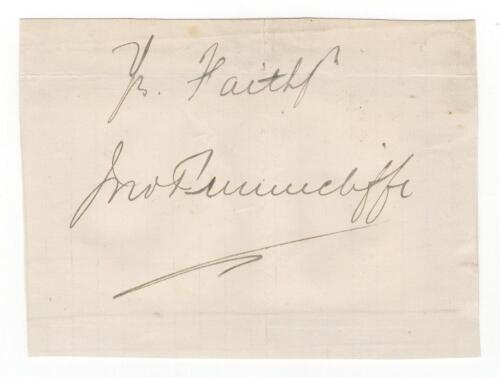 Yrs. Faithf
Jno Tunnicliffe